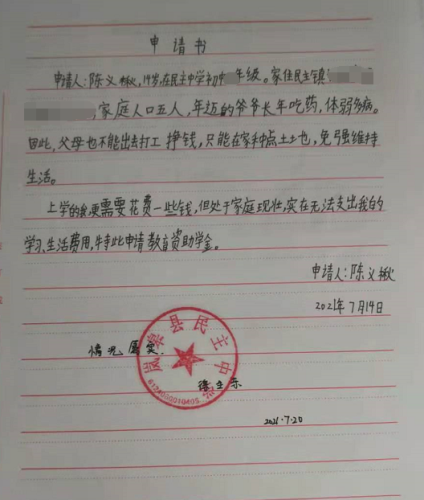 申请书
申请人:陈义楸,14岁,在民主中学初中年级。家住民主镇
,家庭人口五人,年迈的爷爷长年吃药,体弱多病。
因此,父母也不能出去打工挣钱,只能在家种点土地,免强维持
生活。
上学的我更需要花费一些钱,但处于家庭现壮,实在无法支出我的
学习、生活费用,特此申请教育资助学金。
申请人:陈义楸
2021年7月19日
情况属实.
岚皋县民主中学
2021.7.20